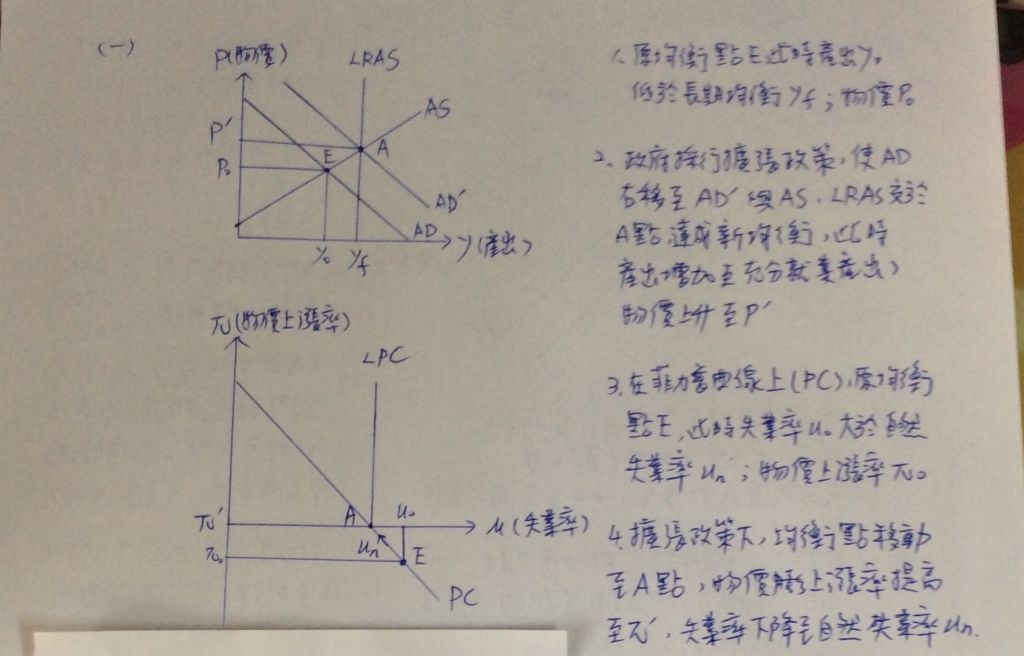 (一)
P(物價)
LRAS
AS
P'
A
E
P₀
AD'
AD
y(產出)
y₀
yf
π(物價上漲率)
LPC
π'
A
u₀
u(失業率)
un
π₀
E
PC
1. 原均衡點E此時產出y₀
低於長期均衡yf；物價P₀
2. 政府採行擴張政策，使AD
右移至AD'與AS、LRAS交於
A點，達成新均衡，此時
產出增加至充分就業產出，
物價上升至P'
3. 在菲力普曲線上(PC)，原均衡
點E，此時失業率u₀大於自然
失業率un；物價上漲率π₀
4. 擴張政策下，均衡點移動
至A點，物價上漲率提高
至π'，失業率下降至自然失業率un.